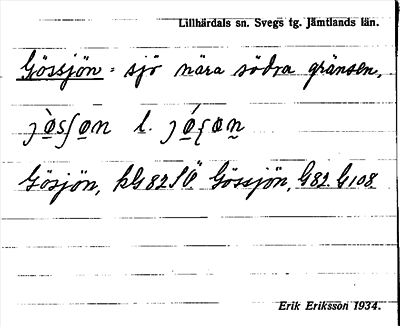 Lillhärdals sn. Svegs tg. Jämtlands län.
Gössjön = sjö nära södra gränsen,
l.
Gösjön, kG 82 SÖ Gössjön, G82. G108
Erik Eriksson 1934.